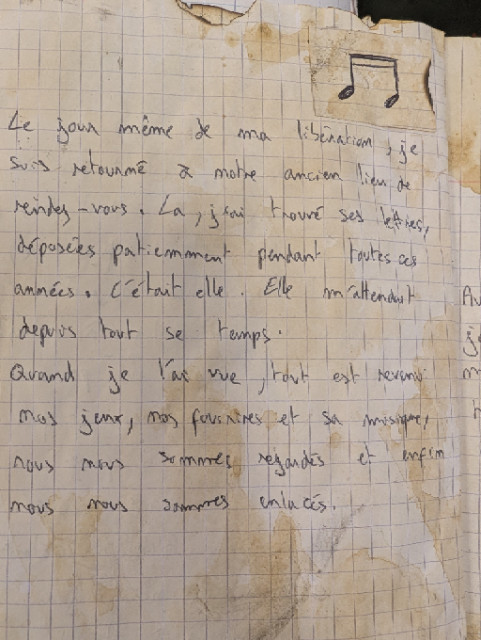 Le jour même de ma libération, je
suis retourné à notre ancien lieu de
rendez-vous. Là, j'ai trouvé ses lettres,
déposées patiemment pendant toutes ces
années. C'était elle. Elle m'attendait
depuis tout se temps.
Quand je l'ai vue, tout est revenu
nos jeux, nos fousrires et sa musique,
nous nous sommes regardés et enfin
nous nous sommes enlacés.